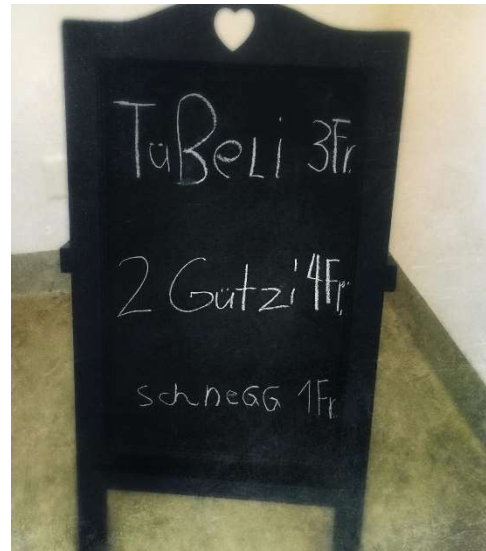 TüBeLi 3Fr.
2 Gützi 4Fr.
schneGG 1Fr.